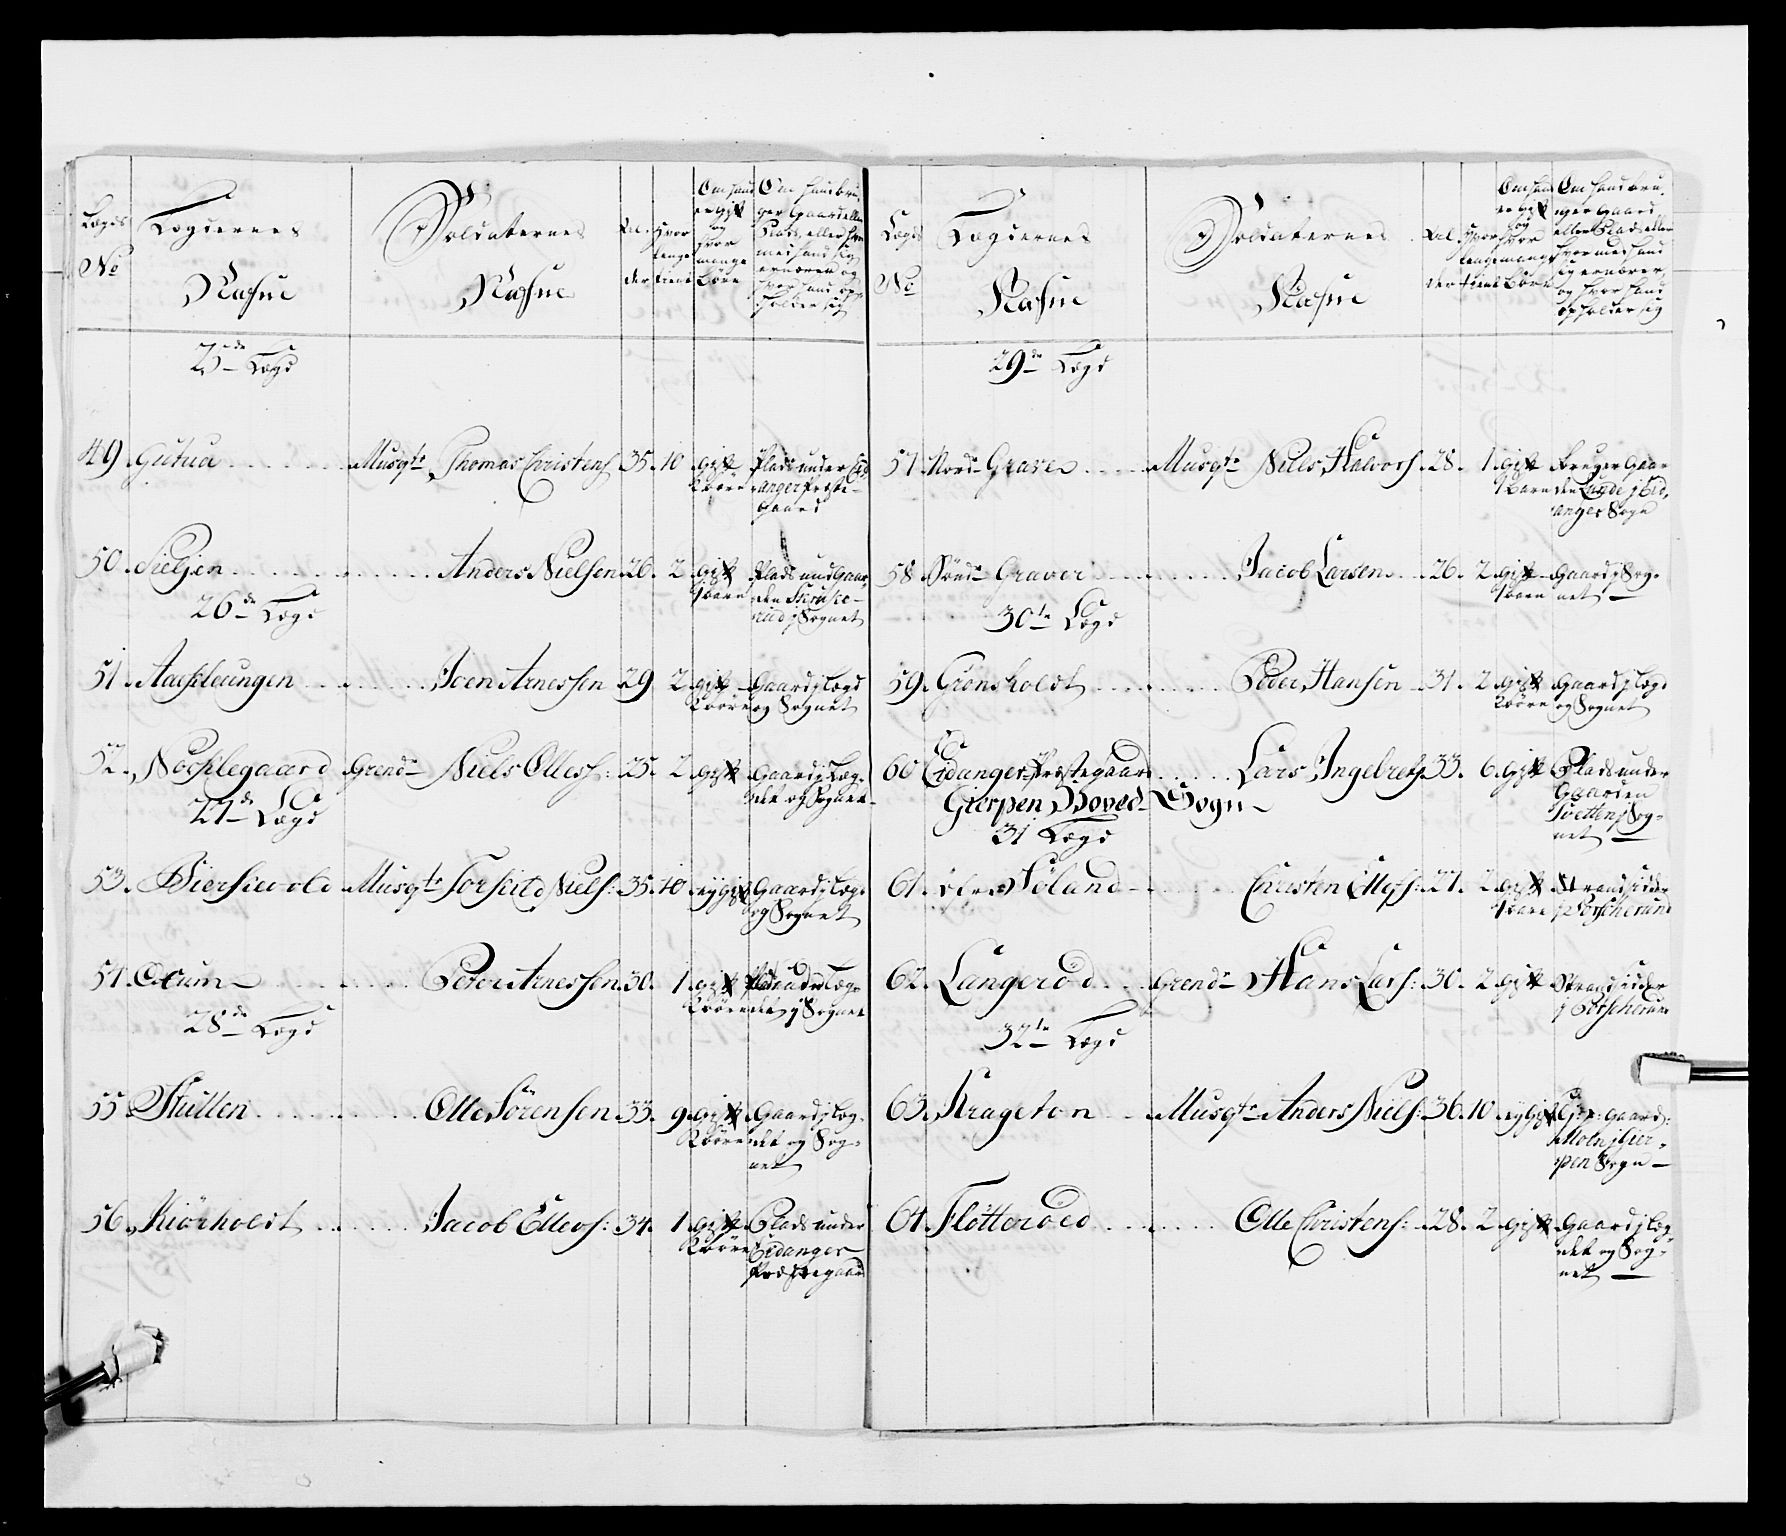 Lægds No
Lægdernes Nafne
Soldaternes Nafne
Alder
Hvor længe tient
Om hand er gift og hvor mange Børn
Om hand bruger Gaard eller Plads, eller hvormed hand sig ernærer og hvor hand opholder sig
25de Lægd
49. Gutua Musqtr Thomas Christens 35. 10 gift Plads under Eidanger Præstegaard
50. Sieljen Anders Nielsen 26. 2 gift 1 barn Plads und Gaarden i Sognet
26de Lægd
51. Aaklungen Joen Arnessen 29 2 gift Gaard i Lægd og Sognet
52. Nøcklegaard Grendr Niels Olless: 25. 2 gift Gaard i Lægdet og Sognet
27de Lægd
53. Bierkevold Musqtr Torkild Niels: 35. 10 ey gift Gaard i Lægd og Sognet
54. Ørum Peter Arnessen 30. 1 gift Plads under Lægdet i Sognet
28de Lægd
55 Skitten Olle Sörensen 33. 9 gift Gaard i Lægdet og Sognet
56. Kiörholdt Jacob Ellevs: 34. 1 gift Plads under Eidanger Præstegaard
Lægds No
Lægdernes Nafne
Soldaternes Nafne
Alder
Hvor længe tient
Om hand er gift og hvor mange Børn
Om hand bruger Gaard eller Plads eller hvormed hand sig ernærer, og hvor hand opholder sig
29de Lægd
57. Nordr Graver Musqtr Niels Halvors 28. 1 gift 1 barn Bruger Gaarden Lunde i Eidanger Sogn
58 Söndr Graver Jacob Larsen 26. 2 gift 1 barn Gaard i Sognet
30te Lægd
59. Grönsholdt Peder Hansen 31. 2 gift Gaard i Lægd og Sognet
60 Eidanger Præstegaard Lars Ingebrets 33. 6 gift Plads under Gaarden Tvetten i Sognet
Gierpen Hoved Sogn
31 Lægd
61. øfre Föland Christen Ellefs: 27. 2 gift 1 barn Strandsidder i Porsgrund
62. Langeröd Grendr Hans Lars: 30. 2 gift Strandsidder i Porsgrund
32te Lægd
63. Krageton Musqtr Anders Niels: 36. 10 ey gift Gaard i Gierpen Sogn
64. Flötteröed Olle Christens: 28. 2 gift Gaard i Lægdet og Sognet